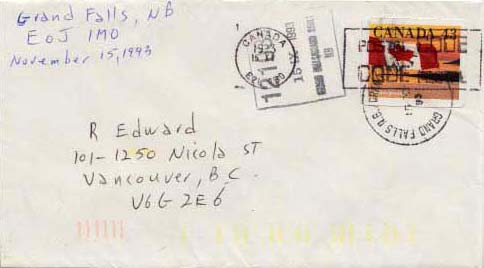 Grand Falls, NB
EoJ 1MO
November 15, 1993
CANADA
1993
1217
CANADA 43
POSTAL CODE
CODE
GRAND FALLS
R Edward
101-1250 Nicola ST
Vancouver, B.C.
V6G 2E6